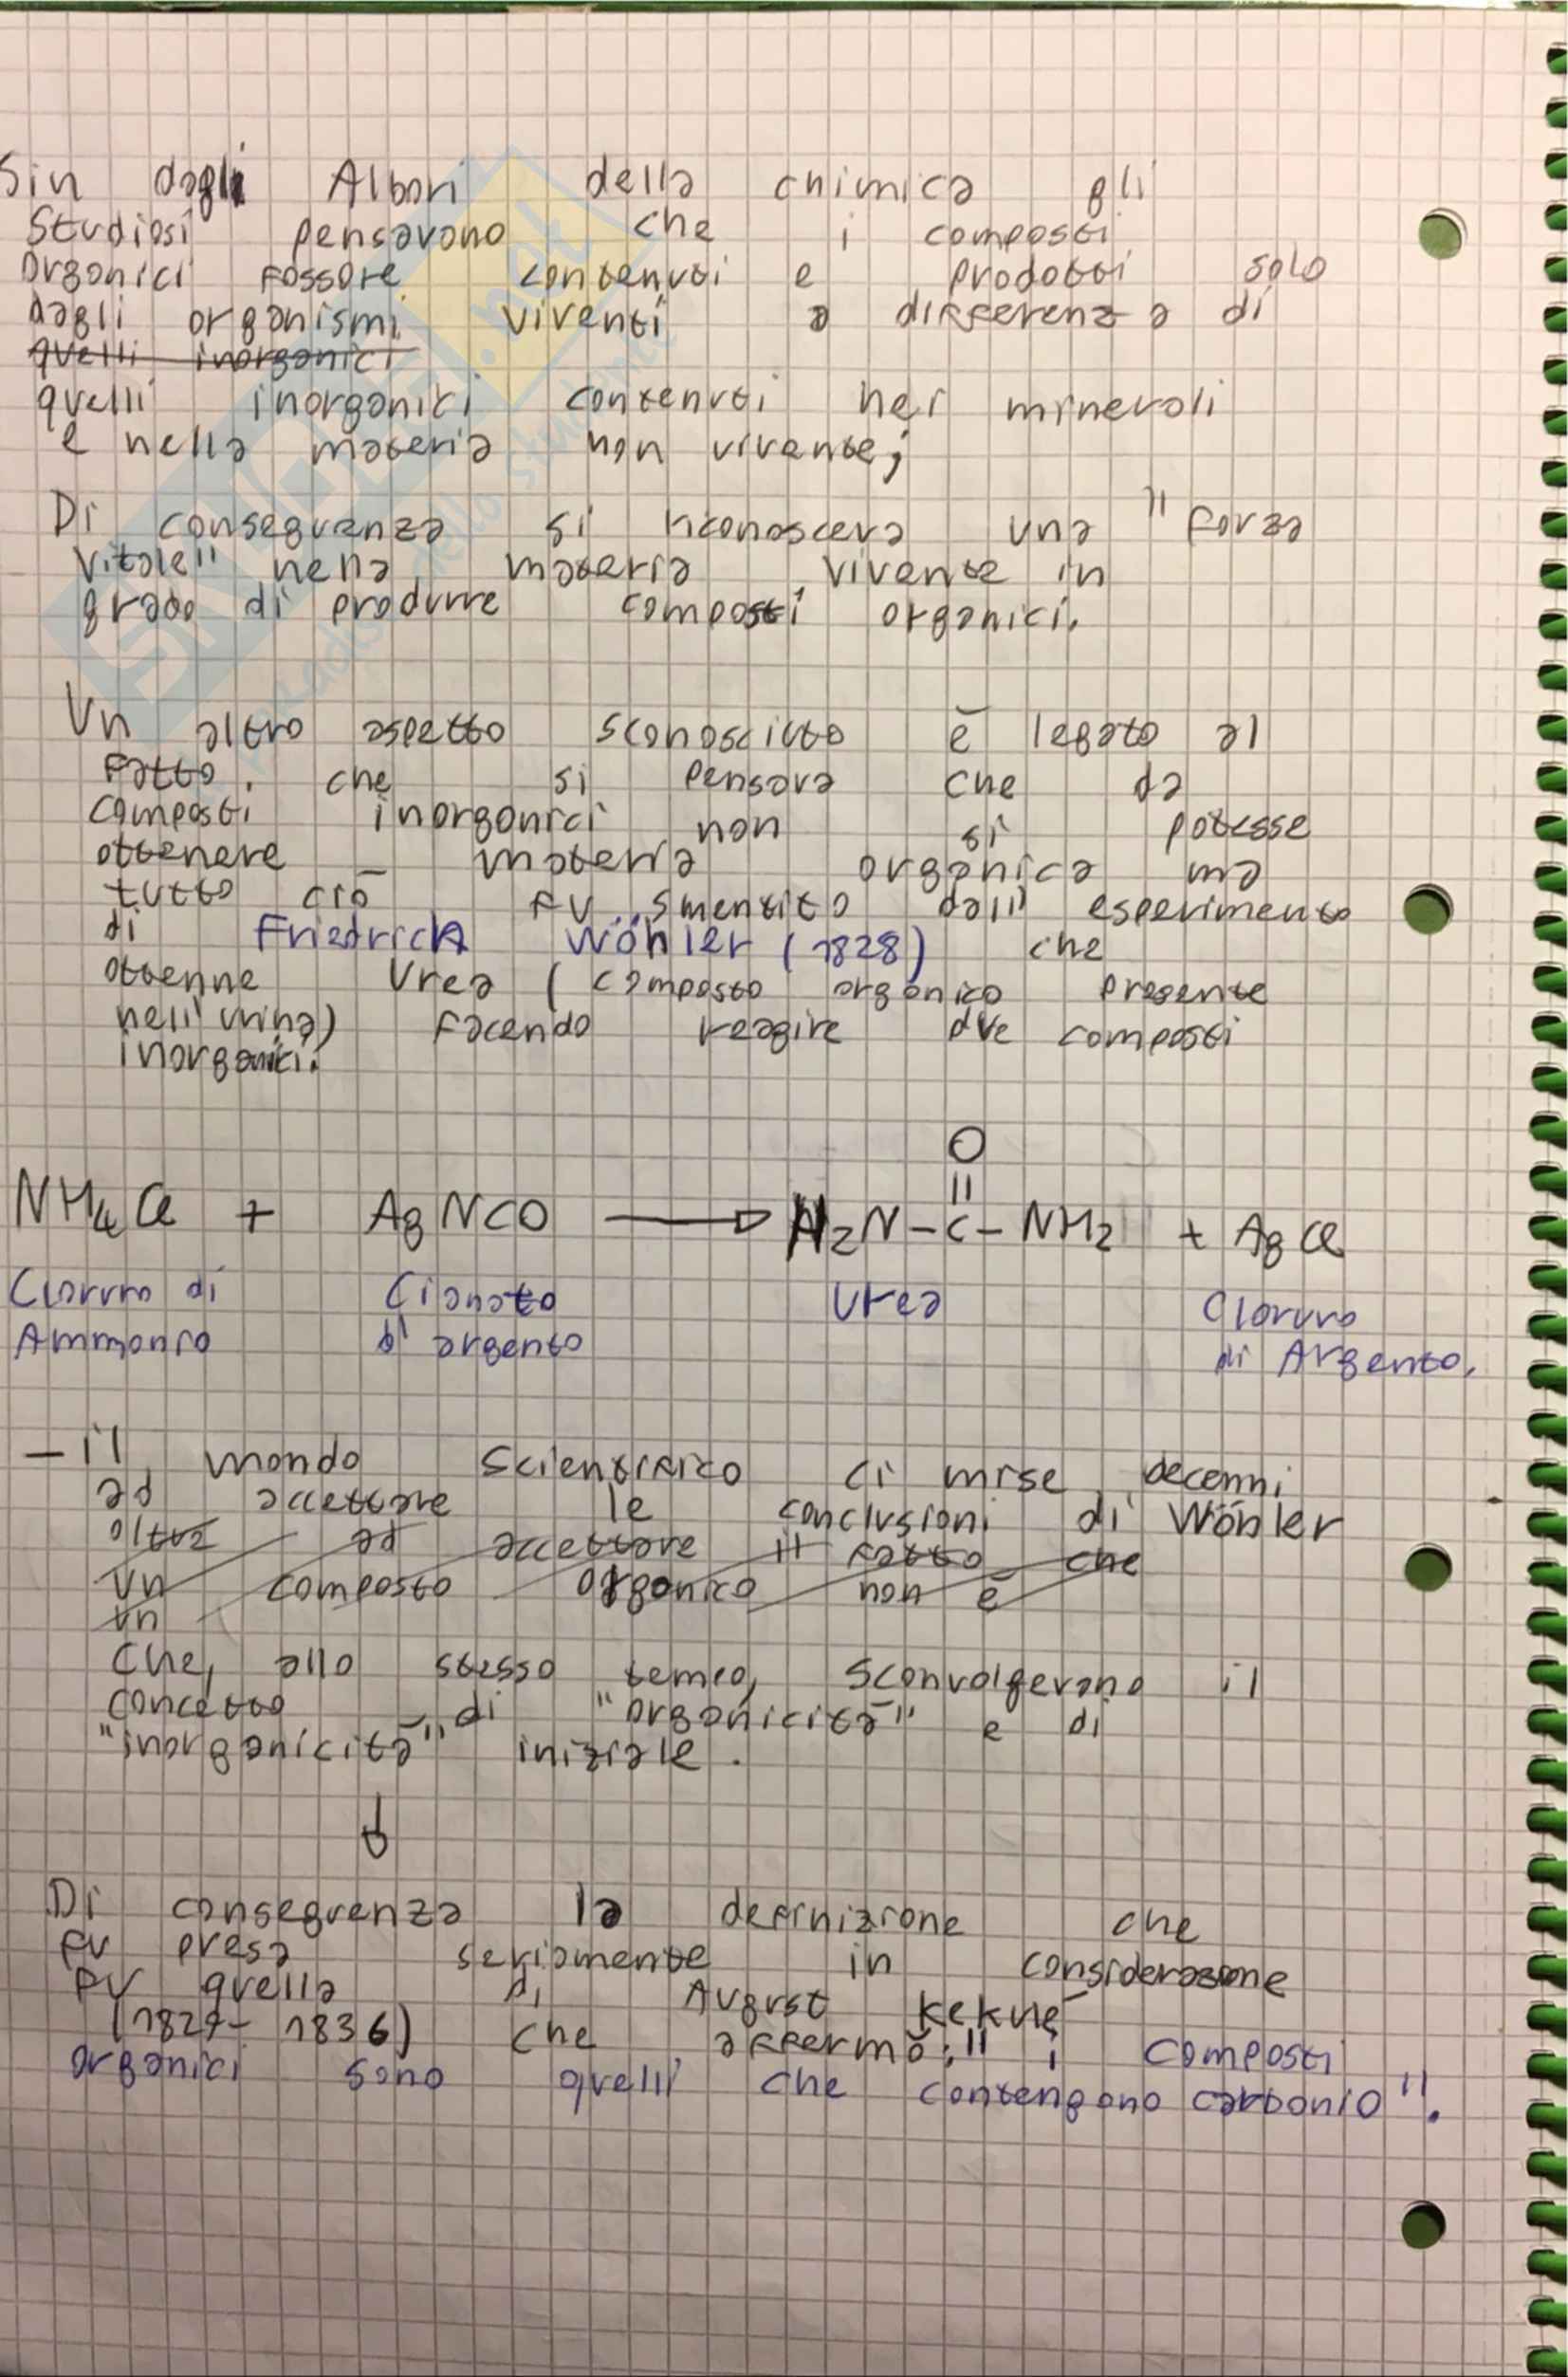 Sin dagli Albori della chimica gli
Studiosi pensavano che i composti
organici fossore contenuti e prodotti solo
dagli organismi viventi a differenza di
quelli inorganici
quelli inorganici contenuti nei minerali
e nella materia non vivente;
Di conseguenza si riconosceva una "forza
vitale" nella materia vivente in
grado di produrre composti organici.
Un altro aspetto sconosciuto è legato al
fatto che si pensava che da
composti inorganici non si potesse
ottenere materia organica ma
tutto ciò fu smentito dall' esperimento
di Friedrich Wöhler (1828) che
ottenne Urea (composto organico presente
nell' urina) facendo reagire due composti
inorganici:
O
NH4Cl + AgNCO → H2N-C-NH2 + AgCl
Cloruro di Cianato Urea Cloruro
Ammonio d' argento di Argento.
- il mondo scientifico ci mise decenni
ad accettare le conclusioni di Wöhler
oltre ad accettare il fatto che
un composto organico non è
un
Che, allo stesso temeo, sconvolgevano il
concetto di "organicità" e di
"inorganicità" iniziale.
Di conseguenza la definizione che
fu presa seriamente in considerazione
fu quella di August Kekulé
(1827- 1836) che affermò: " i composti
organici sono quelli che contengono carbonio".